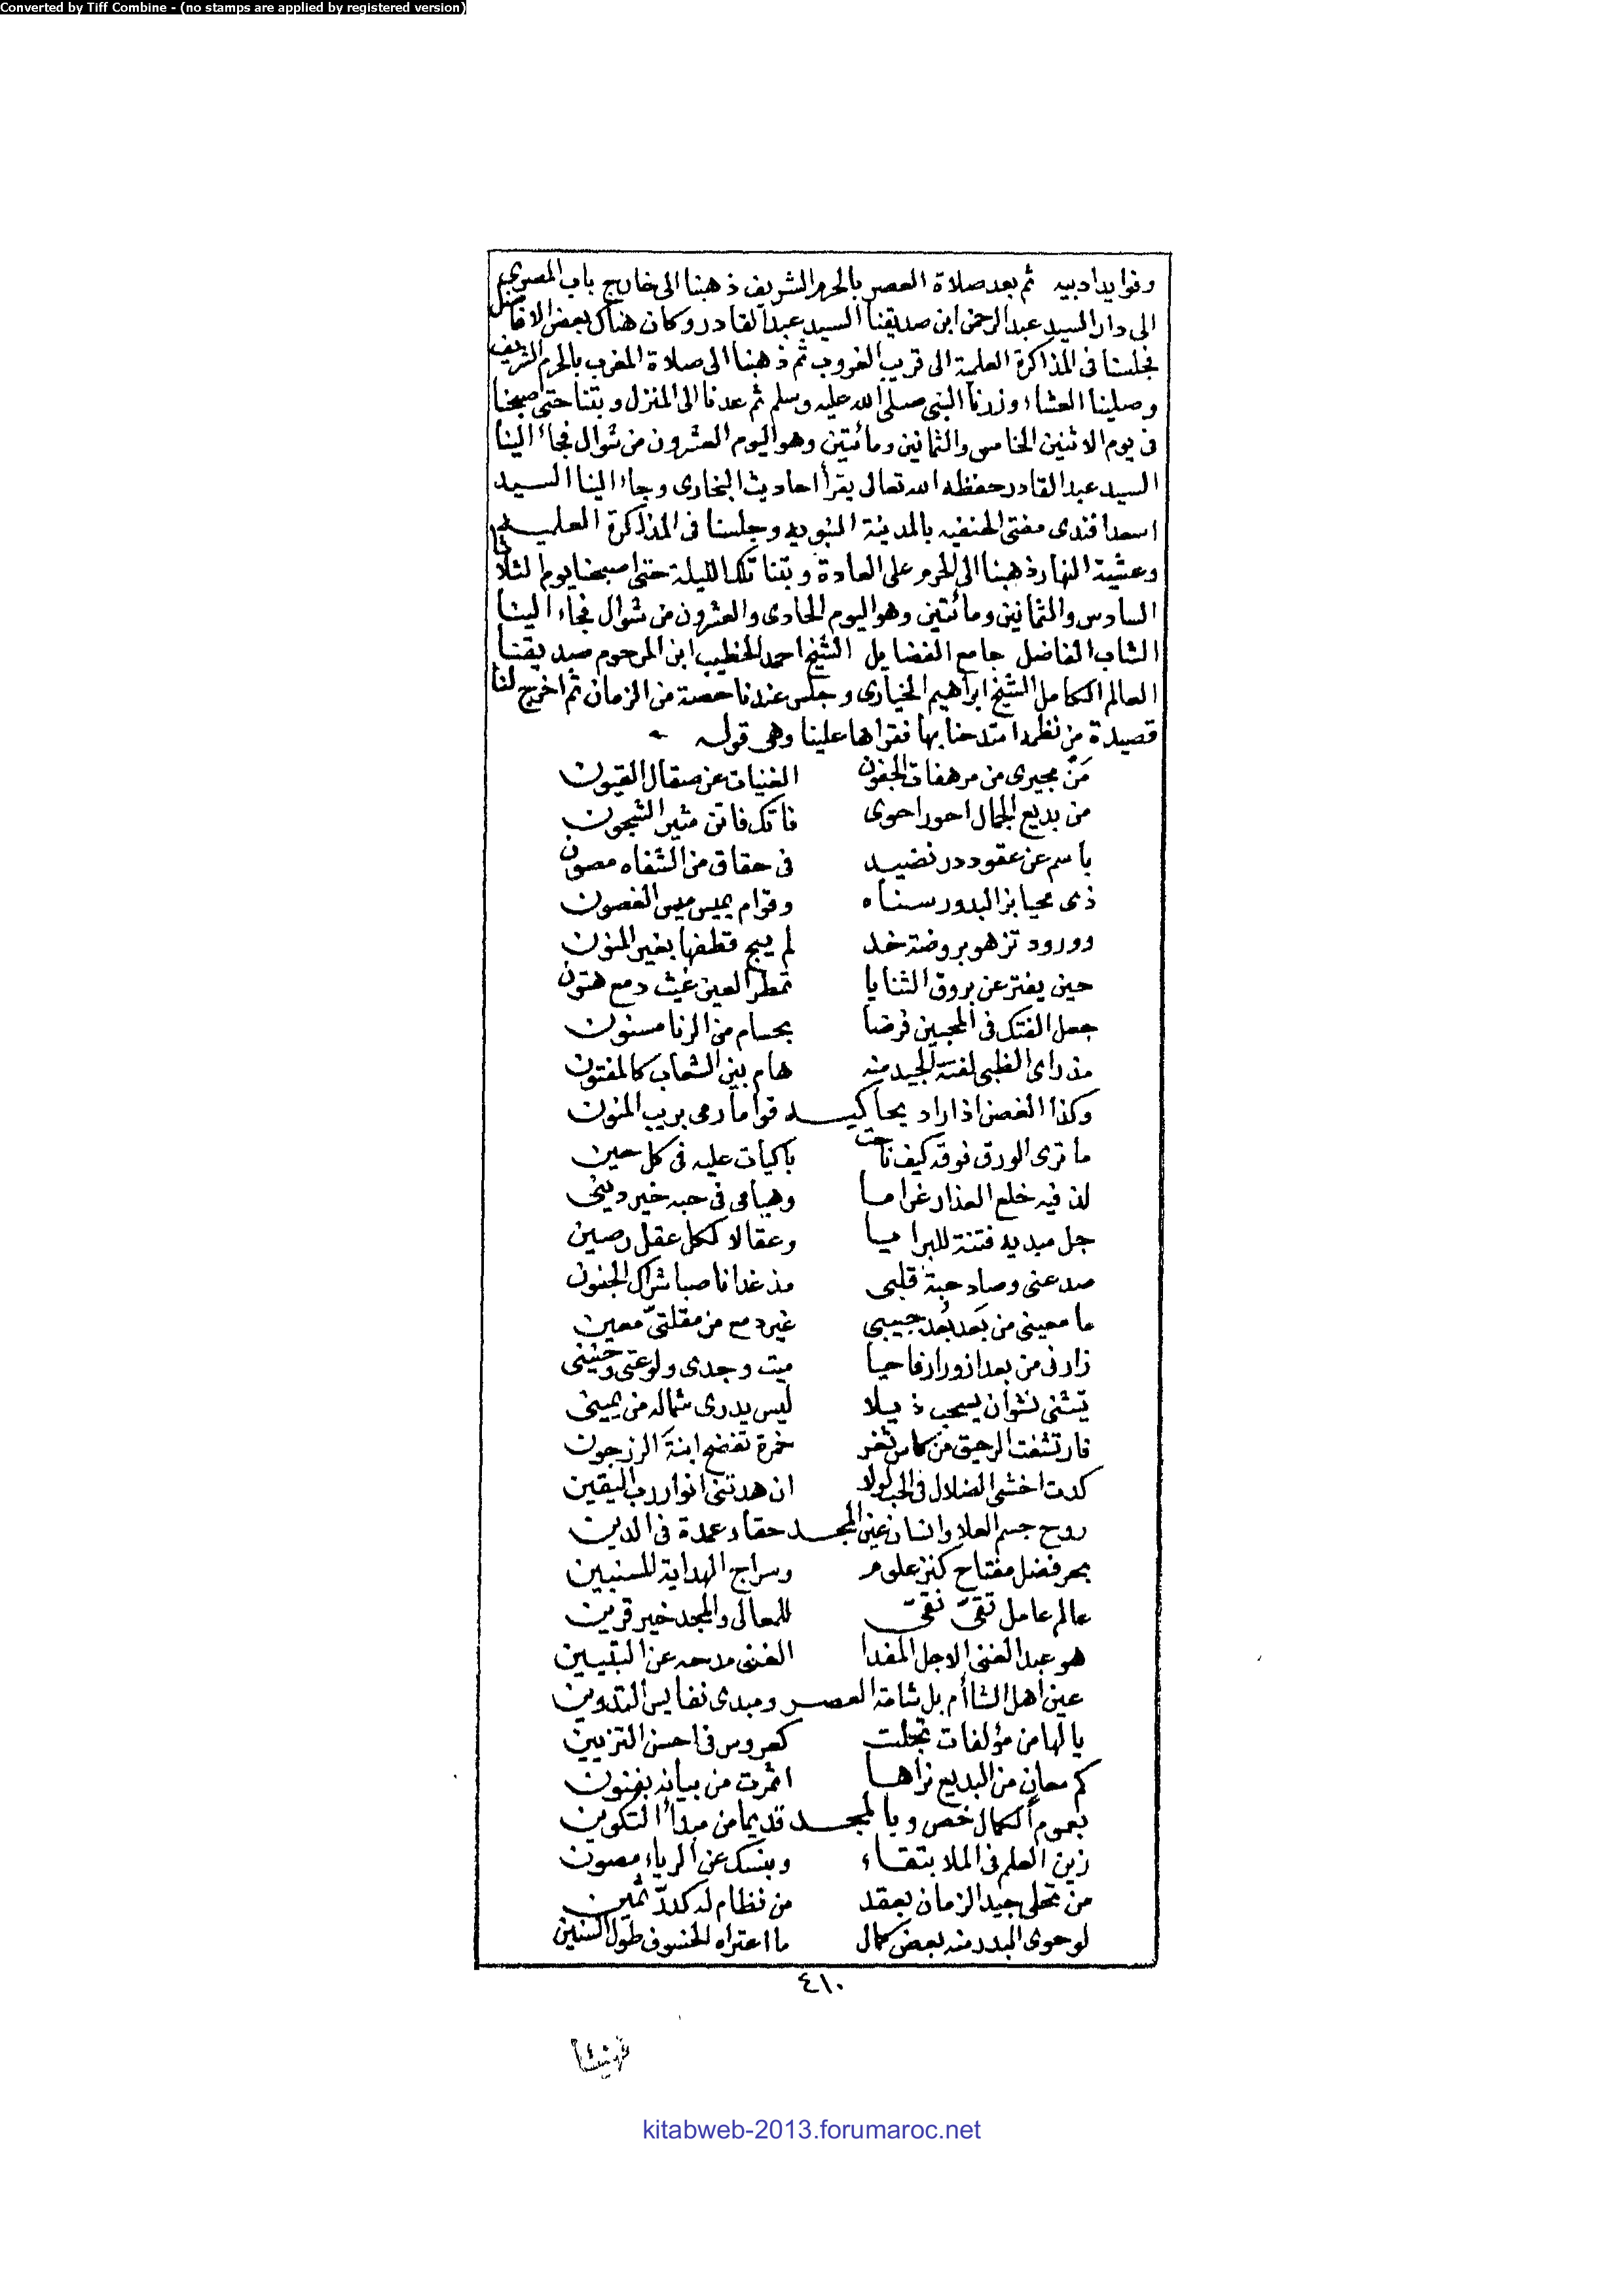 Converted by Tiff Combine - (no stamps are applied by registered version)
وفوايد ادبيه ثم بعد صلاة العصر بالحرم الشريف ذهبنا الى خارج باب المصري
الى دار السيد عبد الرحمن ابن صديقنا السيد عبد القادر وكان هناك بعض الافاضل
فجلسنا فى المذاكرة العلمية الى قريب الغروب ثم ذهبنا الى صلاة المغرب بالحرم الشريف
وصلينا العشاء وزرنا النبى صلى الله عليه وسلم ثم عدنا الى المنزل وبتنا حتى اصبحنا
فى يوم الاثنين الخامس والثمانين ومائتين وهو اليوم العشرون من شوال فجاء الينا
السيد عبد القادر حفظه الله تعالى يقرأ احاديث البخارى وجاء الينا السيد
اسعد افندى مفتى الحنفيه بالمدينة النبويه وجلسنا فى المذاكرة العلميه
وعشية النهار ذهبنا الى الحرم على العادة وبتنا تلك الليلة حتى اصبحنا يوم الثلاثا
السادس والثمانين ومائتين وهو اليوم الحادى والعشرون من شوال فجاء الينا
الشاب الفاضل جامع الفضايل الشيخ احمد الخطيب ابن المرحوم صديقنا
العالم الكامل الشيخ ابراهيم الخيارى وجلس عندنا حصة من الزمان ثم اخرج لنا
قصيدة من نظمه امتدحنا بها فقراها علينا وهى قوله
مَنْ مجيرى من مرهفات الجفون الغنيات عن صقال القيون
من بديع الجمال احور احوى فاتك فاتن مثير الشجون
باسم عن عقود در نضيد فى حقاق من الشفاه مصون
ذى محيا بز البدور سناه وقوام يميس ميس الغصون
وورود تزهو بروضة خد لم يبح قطفها بغير المنون
حين يفتر عن بروق الثنايا تمطر العين غيث دمع هتون
جعل الفتك فى المحبين فرضا بحسام من الرنا مسنون
مذ راى الظبى لفتة الجيد منه هام بين الشعاب كالمفتون
وكذا الغصن اذ اراد يحاكيـه قواما رمى بريب المنون
ما ترى الورق فوقه كيف ناحت باكيات عليه فى كل حين
لذ فيه خلع العذار غراما وهيامى فى حبه خير دينى
جل مبديه فتنة للبرايا وعقالا لكل عقل رصين
صد عنى وصاد حبة قلبى مذ غدا ناصبا شراك الجفون
ما معينى من بَعد بُعد حبيبى غير دمع من مقلتىّ معين
زارنى من بعد ازورار فاحيا ميت وجدى ولوعتى وحنينى
يتثنى نشوان يسحب ذيلا ليس يدرى شماله من يمينى
فارتشفت الرحيق من كاس ثغر خمرة تفضح ابنة الزرجون
كدت اخشى الضلال فى الحب لولا ان هدتنى انوار رب اليقين
روح جسم العلا وانسان عين المجـد حقا وعمدة فى الدين
بحر فضل مفتاح كنز علوم وسراج الهداية للمستبين
عالم عامل تقىّ نقىّ للمعالى والمجد خير قرين
هو عبد الغنى الاجل المفدا الغنى مدحه عن التبيين
عين اهل الشأم بل شامة العصـر ومبدى نفايس التدوين
يا لها من مؤلفات تجلت كعروس فى احسن التزيين
كم معانٍ من البديع نراها اثمرت من بيانه بفنون
بعموم الكمال خص وبالمجـد قديما من مبدأ التكوين
زين العلم فى الملا بتقاء وبنسك عن الرياء مصون
من تحلى جيد الزمان بعقد من نظام له كدرّ ثمين
لو حوى البدر منه بعض كمال ما اعتراه الخسوف طول السنين
٤١٠
kitabweb-2013.forumaroc.net